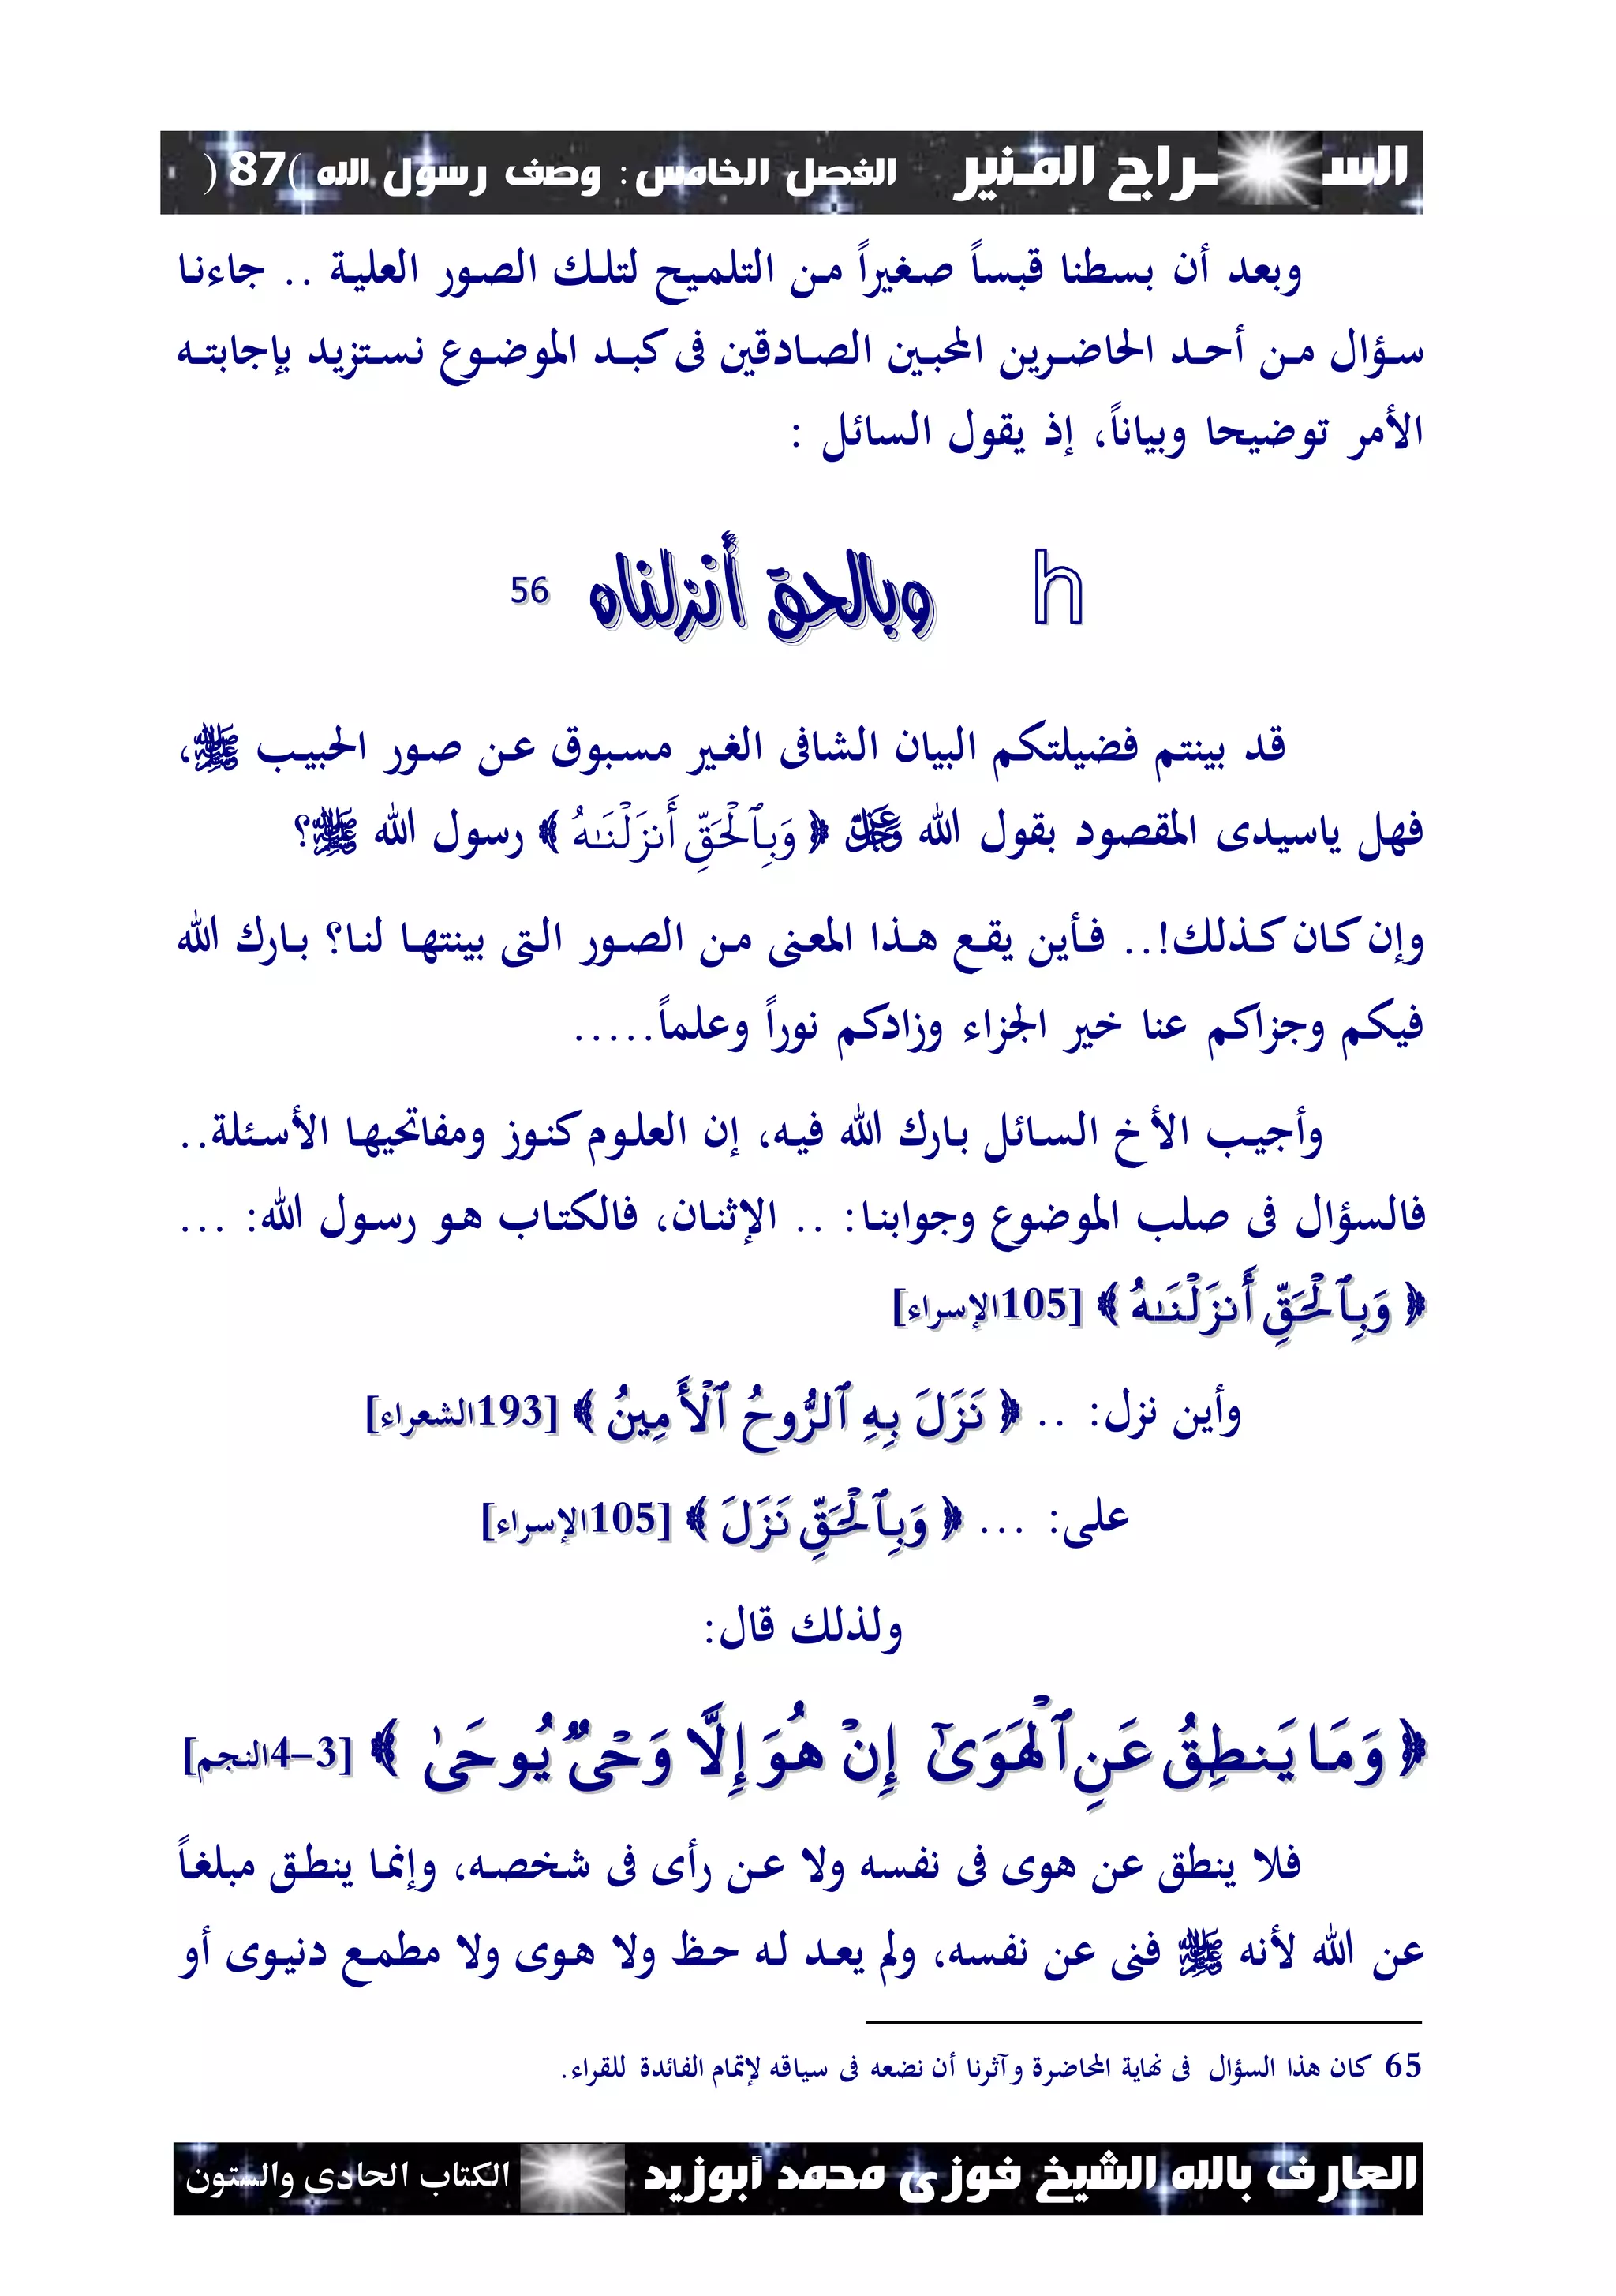 السـراج المـنير الفصل الخامس: وصف رسول الله )87(
وبعد أن بسطنا قبساً صغيراً من التلميح لتلك الصور العلية .. جاءنا
سؤال من أحد الحاضرين المحبين الصادقين فى كبد الموضوع نستزيد بإجابته
الأمر توضيحا وبياناً، إذ يقول السائل :
h وبالحق أنزلناه 56
قد بينتم فضيلتكم البيان الشافى الغير مسبوق عن صور الحبيب ﷺ،
فهل ياسيدى المقصود بقول الله ﷻ ﴿ وَبِٱلْحَقِّ أَنزَلْنَـٰهُ ﴾ رسول الله ﷺ؟
وإن كان كذلك!.. فأين يقع هذا المعنى من الصور التى بينتها لنا؟ بارك الله
فيكم وجزاكم عنا خير الجزاء وزادكم نوراً وعلماً.....
وأجيب الأخ السائل بارك الله فيه، إن العلوم كنوز ومفاتحيها الأسئلة..
فالسؤال فى صلب الموضوع وجوابنا: .. الإثنان، فالكتاب هو رسول الله: ...
﴿ وَبِٱلْحَقِّ أَنزَلْنَـٰهُ ﴾ [105الإسراء]
وأين نزل: .. ﴿ نَزَلَ بِهِ ٱلرُّوحُ ٱلْأَمِينُ ﴾ [193الشعراء]
على: ... ﴿ وَبِٱلْحَقِّ نَزَلَ ﴾ [105الإسراء]
ولذلك قال:
﴿ وَمَا يَنطِقُ عَنِ ٱلْهَوَىٰٓ إِنْ هُوَ إِلَّا وَحْىٌ يُوحَىٰ ﴾ [3-4النجم]
فلا ينطق عن هوى فى نفسه ولا عن رأى فى شخصه، وإنما ينطق مبلغاً
عن الله لأنه ﷺ فنى عن نفسه، ولم يعد له حظ ولا هوى ولا مطمع دنيوى أو
65 كان هذا السؤال فى نهاية المحاضرة وآثرنا أن نضعه فى سياقه لإتمام الفائدة للقراء.
العارف بالله الشيخ فوزى محمد أبوزيد الكتاب الحادى والستون